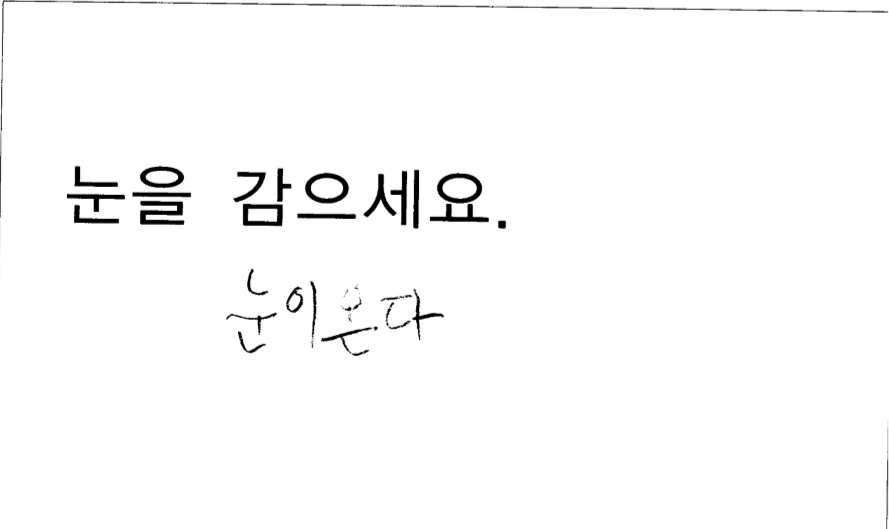 눈을 감으세요.
눈이온다